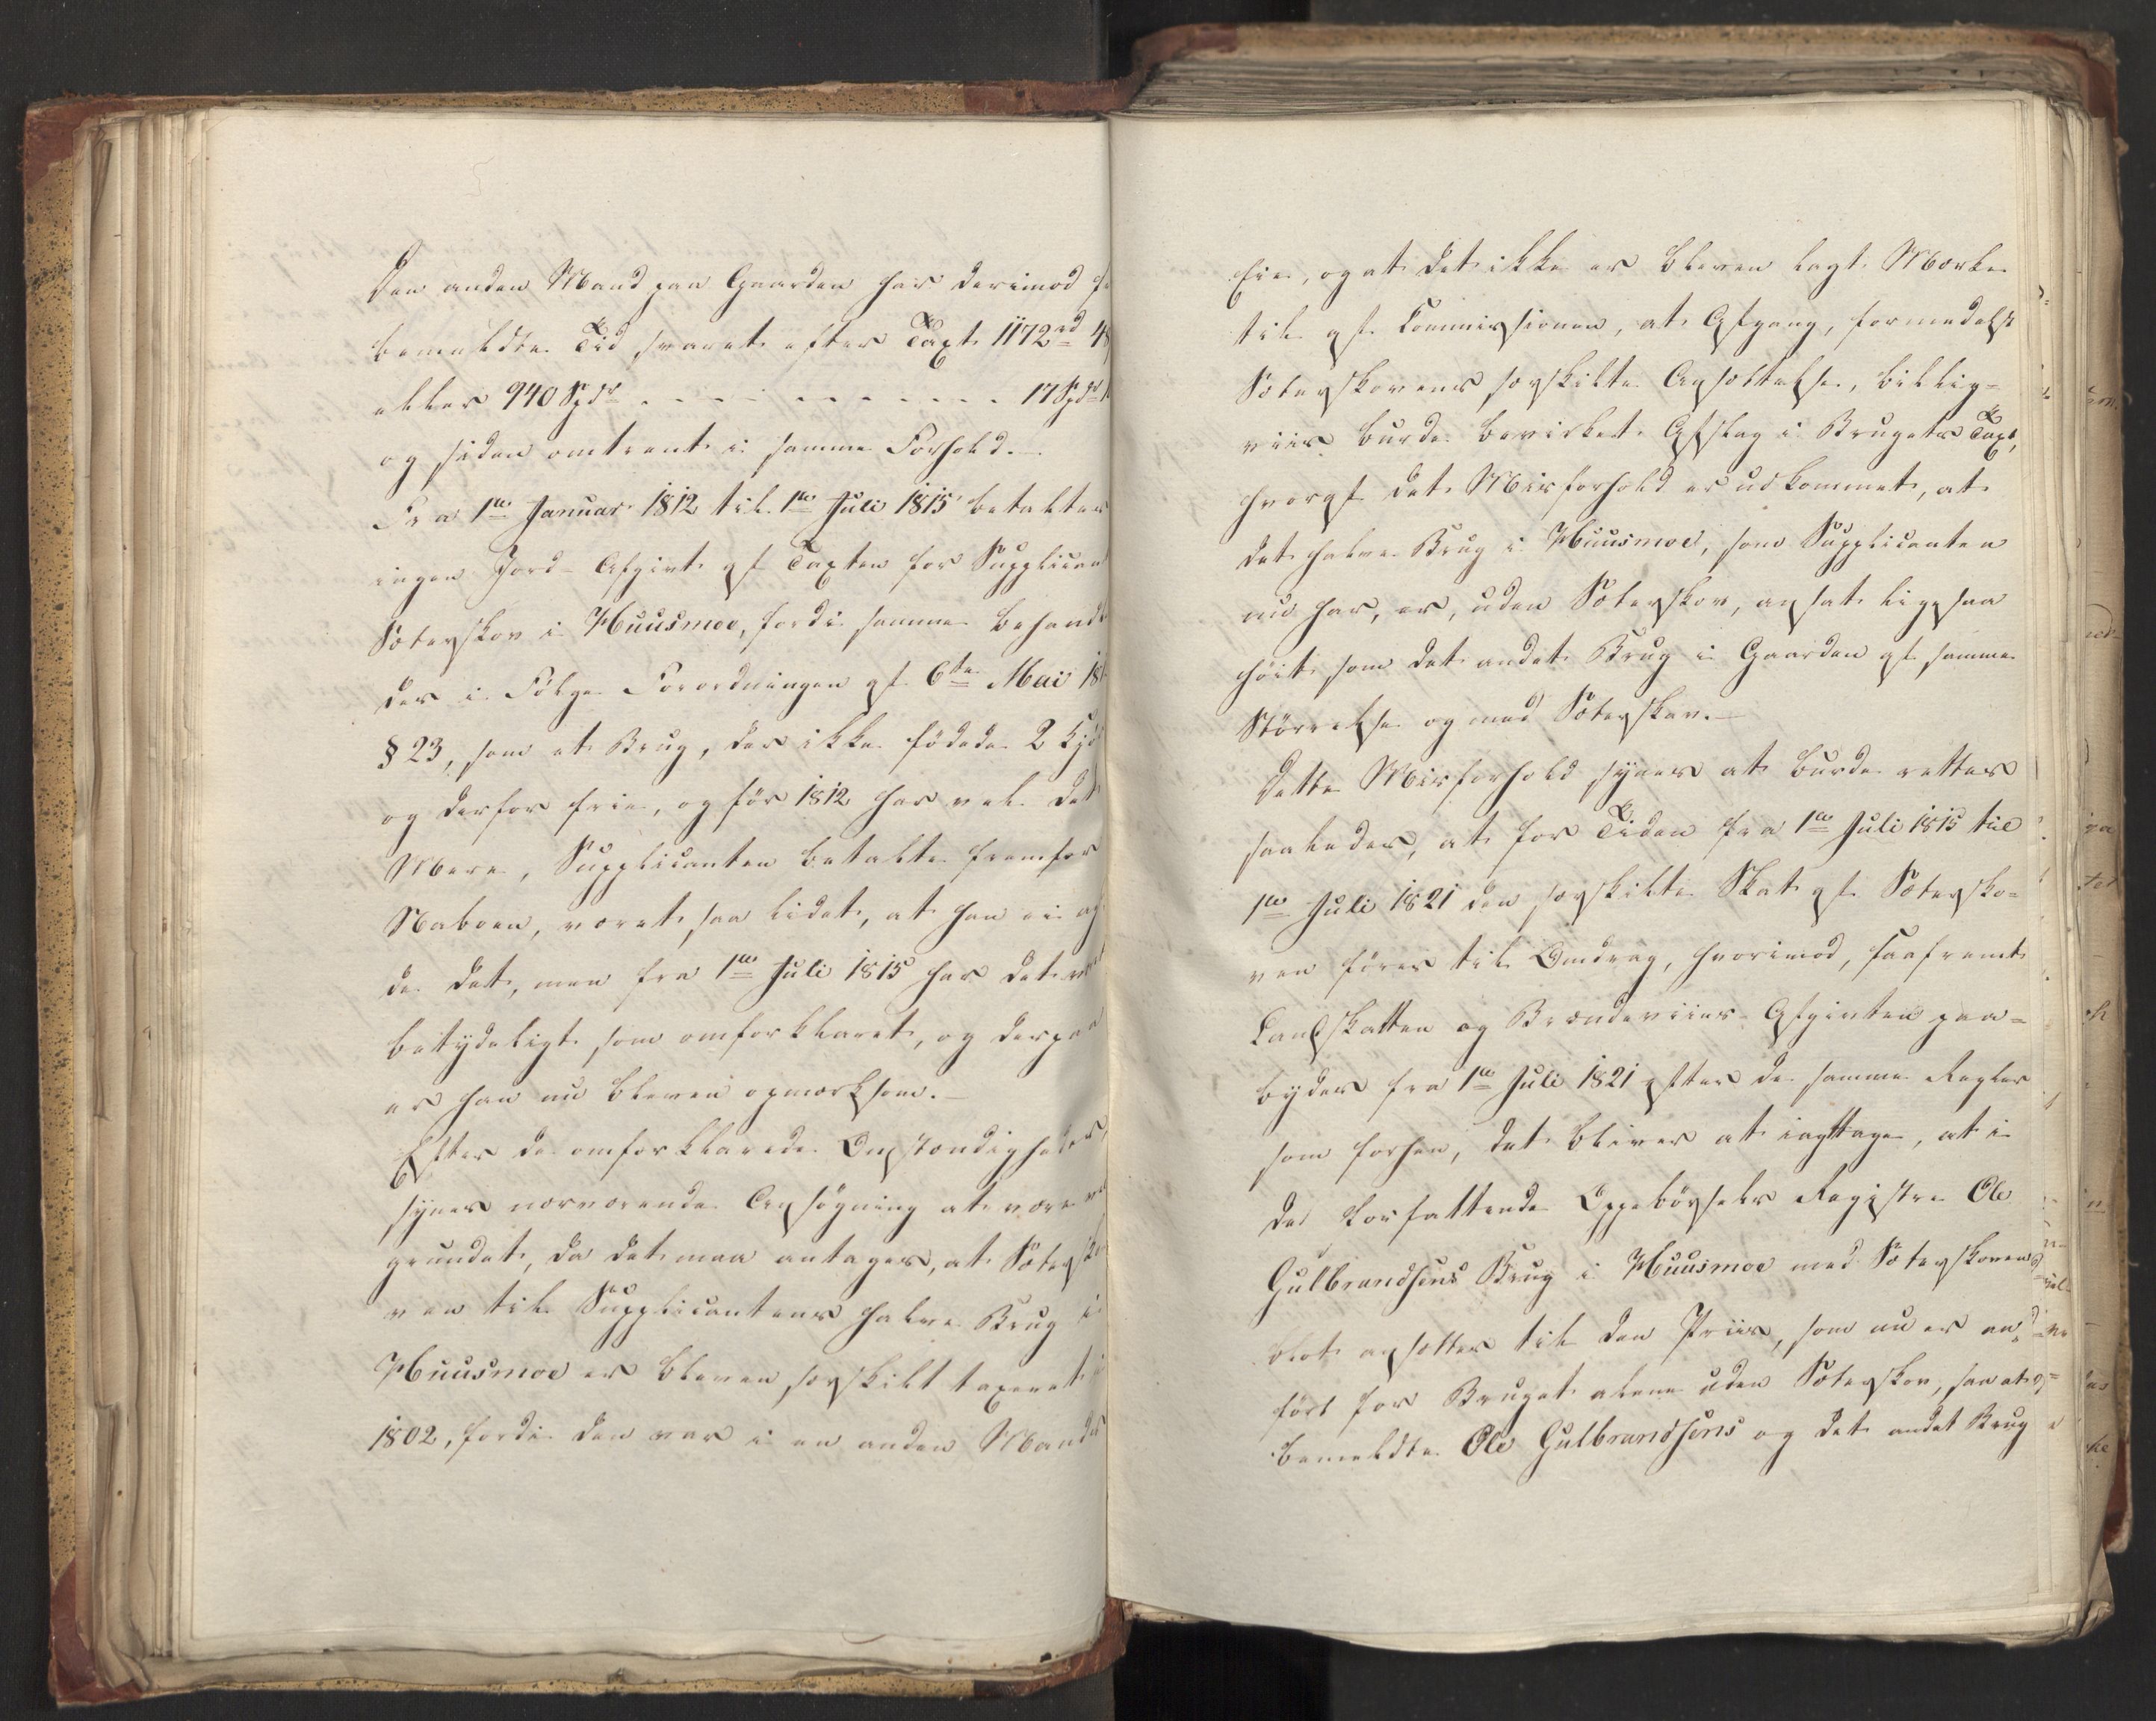 Den anden Mand paa Gaarden har derimod f
bemeldte Tid svaret efter Taxt 1172 rd 48
eller 940 Spdr . . . . . . . . . . 17 Spdr
og siden omtrent i samme Forhold.—
Fra 1ste Januar 1812 til 1ste Juli 1815 betaltes
ingen Jord-Afgivt af Taxten for Supplican
Sæterskov i Huusmoe, fordi samme behand
des i Følge Forordningen af 6te Mai 18
§ 23, som et Brug, der ikke fødede 2 Kjö
og derfor frie, og før 1812 har vel det
Mere, Supplicanten betalte fremfor
Naboen, været saa lidet, at han ei ag
de det, men fra 1ste Juli 1815 har det været
betydeligt som omforklaret, og derpaa
er han nu bleven opmærksom.—
Efter de omforklarede Omstændigheder,
synes nærværende Ansøgning at være vel
grundet, da det maa antages, at Sætersko
ven til Supplicantens halve Brug i
Huusmoe er bleven særskilt taxeret i
1802, fordi den var i en anden Mands
Eie, og at det ikke er bleven lagt Mærke
til af Commissionen, at Afgang, formedelst
Sæterskovens særskilte Ansættelse, billig-
viis burde bevirket Afslag i Brugets Taxt,
hvoraf det Misforhold er udkommet, at
det halve Brug i Huusmoe, som Supplicanten
nu har, er, uden Sæterskov, ansat ligesaa
höit som det andet Brug i Gaarden af samme
Størrelse og med Sæterskov.—
Dette Misforhold synes at burde rettes
saaledes, at for Tiden fra 1ste Juli 1815 til
1ste Juli 1821 den særskilte Skat af Sætersko-
ven føres til Omdrag, hvorimod, saafremt
Landskatten og Brændeviins-Afgivten paa-
bydes fra 1ste Juli 1821 efter de samme Regler
som forhen, det bliver at iagttage, at i
de forfattende Oppebørsels Registre Ole
Gulbrandsens Brug i Huusmoe med Sæterskoven
blot ansættes til den Priis, som nu er an-
ført for Bruget alene uden Sæterskov, saa at
bemeldte Ole Gulbrandsens og det andet Brug